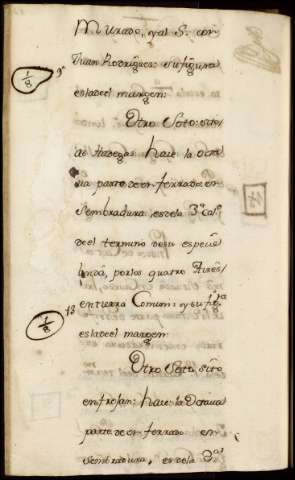 Murado, y al S. con
Juan Rodrigues: su figura
es la del margen:
1/8 9ª
Otro Soto: sito
de Hadegas: hace la octa
va parte de un ferrado en
Sembradura, es de la 3ª cal
de el termino de su especie
linda, por los quatro Aires
en tierra Comun: y su figª
1/8 13
es la del margen
Otro Soto sito
en frojan: hace la Octava
parte de un ferrado en
Sembradura, es de la 3ª